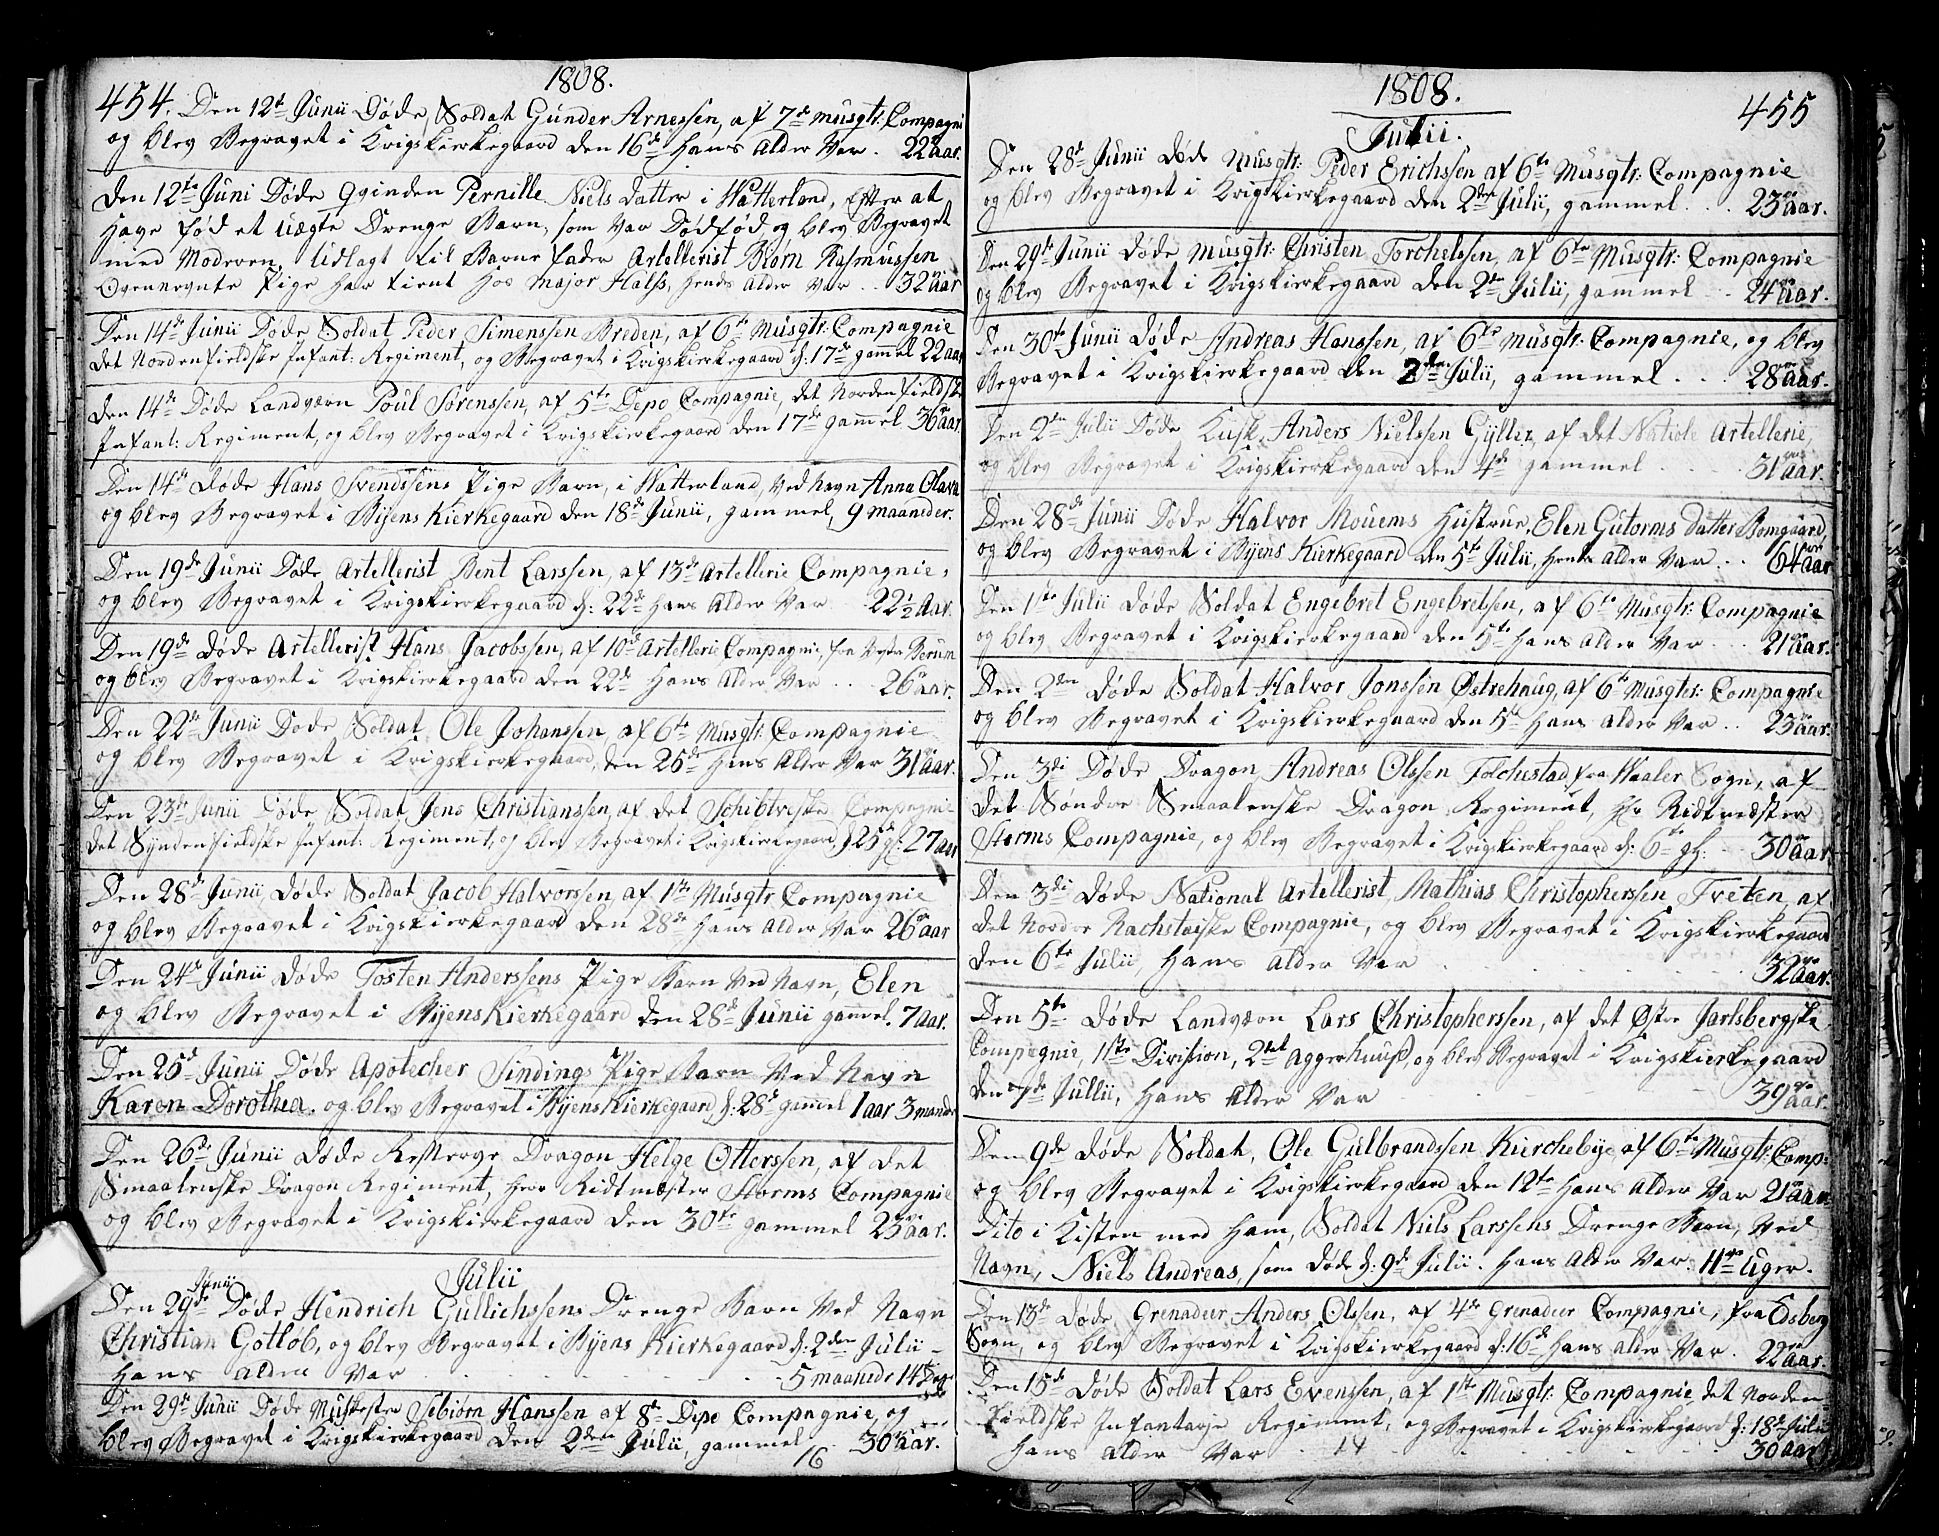 1808.
454. Den 12te Junii Døde, Soldat Gunder Arnessen, af 7de Musqtr: Compagni
og blev Begravet i Krigskierkegaard den 16de Hans Alder Var . 22 aar.
Den 12te Juni Døde Qvinden Pernille Niels datter i Watterland, Efter at
Have fød et Uægte Drenge Barn, som Var Dødfød, og blev Begravet
med Moderen, Udlagt til Barne fader Artellerist Biørn Rasmussen
Ovennevnte Pige Har tient Hos Major Halss, Hendes Alder Var . . 32 aar
Den 14de Junii Døde Soldat Peder Simenssen Breden, af 6te Musqtr: Compagnie
det Nordenfieldske Infant: Regiment, og Begravet i Krigskierkegaard d: 17de gammel 22 aar
Den 14de Døde Landværn Poul Sørenssen, af 5te Depo Compagnie, det Nordenfieldske
Infant: Regiment, og blev Begravet i Krigskierkegaard den 17de gammel 36 aar.
Den 14de Døde Hans Svendssens Pige Barn, i Watterland, Ved Navn Anna Olava
og blev Begravet i Byens Kierkegaard den 18de Junii, gammel, 9 maaneder.
Den 19de Junii Døde Artellerist Bent Larssen, af 13de Artellerie Compagnie,
og blev Begravet i Krigskierkegaard d: 22de Hans Alder Var . . 22½ Aar.
Den 19de Døde Artellerist Hans Jacobssen, af 10de Artellerie Compagnie, fra Vestre Berum
og blev Begravet i Krigskierkegaard den 22de Hans Alder Var . 26 aar.
Den 22de Junii Døde Soldat Ole Johanssen, af 6te Musqtr: Compagnie
og blev Begravet i Krigskierkegaard, den 25de Hans Alder Var 31 aar.
Den 23de Junii Døde Soldat Jens Christianssen, af det Schibtvedske Compagnie
det Syndenfieldske Infant: Regiment, og blev Begravet i Krigskierkegaard d 25de gl: 27 aar
Den 28de Junii Døde Soldat Jacob Halvorssen, af 1ste Musqtr Compagnie
og blev Begravet i Krigskierkegaard den 28de Hans Alder Var 26 aar
Den 24de Junii Døde Tosten Anderssens Pige Barn Ved Navn, Elen
og blev Begravet i Byens Kierkegaard den 28de Junii gammel. 7 aar.
Den 25de Junii Døde Apotecher Sindings Pige Barn Ved Navn
Karen Dorothea. og blev Begravet i Byens Kierkegaard, d: 28de gammel 1 aar 3 mander
Den 26de Junii Døde Dragon Helge Otterssen, af det
Smaalenske Dragon Regiment, Herr Ridtmester Storms Compagnie
og blev Begravet i Krigskierkegaard den 30te gammel 23 aar.
Julii
Den 29de Junii Døde Hendrich Gullichssens Drenge Barn Ved Navn
Christian Gotlob, og blev Begravet i Byens Kierkegaard d: 2den Julii
Hans Alder Var . . . 5 maaneder 14 Dage
Den 29de Junii Døde Muskesteer Sebiørn Hanssen af 8de Depo Compagnie, og
blev Begravet i Krigskierkegaard den 2den Julii, gammel . . 30 aar.
16
1808.
455
Julii.
Den 28de Junii Døde Musqtr: Peder Erichssen af 6te Musqtr: Compagnie
og blev Begravet i Krigskierkegaard den 2den Julii, gammel . . . 23 aar.
Den 29de Junii Døde Musqtr: Christen Torchelssen, af 6te Musqtr: Compagnie
og blev Begravet i Krigskierkegaard den 2den Julii, gammel . . 24 aar.
Den 30te Junii Døde Andreas Hanssen, af 6te Musqtr: Compagnie, og blev
Begravet i Krigskierkegaard den 2den Julii, gammel . . . 28 aar.
Den 2den Julii Døde Kusk, Anders Nielssen Gyller, af det Natiole Artellerie,
og blev Begravet i Krigskierkegaard den 4de gammel . . . 31 aar.
Den 28de Junii Døde Halvor Mouems Hustrue, Elen Gutorms datter Bomgaard,
og blev Begravet i Byens Kierkegaard den 5te Julii, Hendes Alder Var . . 64 aar
Den 1ste Julii Døde Soldat Engebret Engebretssen, af 6te Musqtr: Compagnie
og blev Begravet i Krigskierkegaard den 5te Hans Alder Var . . . 21 aar.
Den 2den Døde Soldat Halvor Jonssen Østrehaug, af 6te Musqter: Compagnie
og blev Begravet i Krigskierkegaard den 5te Hans Alder Var . . 23 aar.
Den 3di Døde Dragon Andreas Olssen Folchestad fra Waaler Sogn, af
det Søndre Smaalenske Dragon Regiment, Hr Ridtmester
Storms Compagnie, og blev Begravet i Krigskierkegaard d: 6te gl: 30 aar
Den 3di Døde National Artellerist, Mathias Christopherssen Tveten, af
det Nordre Rachstaiske Compagnie, og blev Begravet i Krigskierkegaard
den 6te Julii, Hans Alder Var . . . 32 aar.
Den 5te Døde Landværn Lars Christopherssen, af det Østre Jarlsbergske
Compagnie, 1ste Division, 2det Aggerhuuss, og blev Begravet i Krigskierkegaard
den 7de Jullii, Hans Alder Var . . . 39 aar.
Den 9de Døde Soldat, Ole Gulbrandssen Kirchebye, af 6te Musqtr: Comp:
og blev Begravet i Krigskierkegaard den 12te Hans Alder Var 21 aar.
Dito i Kisten med Ham, Soldat Niels Larssens Drenge Barn, Ved
Navn, Niels Andreas, som Døde d: 9de Julii. Hans Alder Var. 11 Uger.
Den 13de Døde Grenadeer Anders Olssen, af 4de Grenadeer Compagnie, fra Edsberg
Sogn, og blev Begravet i Krigskierkegaard d: 16de Hans Alder Var . 22 aar.
Den 15de Døde Soldat Lars Evenssen, af 1ste Musqtr: Compagnie det Norden-
fieldske Infantarje Regiment, og Begravet i Krigskierkegaard d: 18de Julii
Hans Alder Var . . . 30 aar.
14